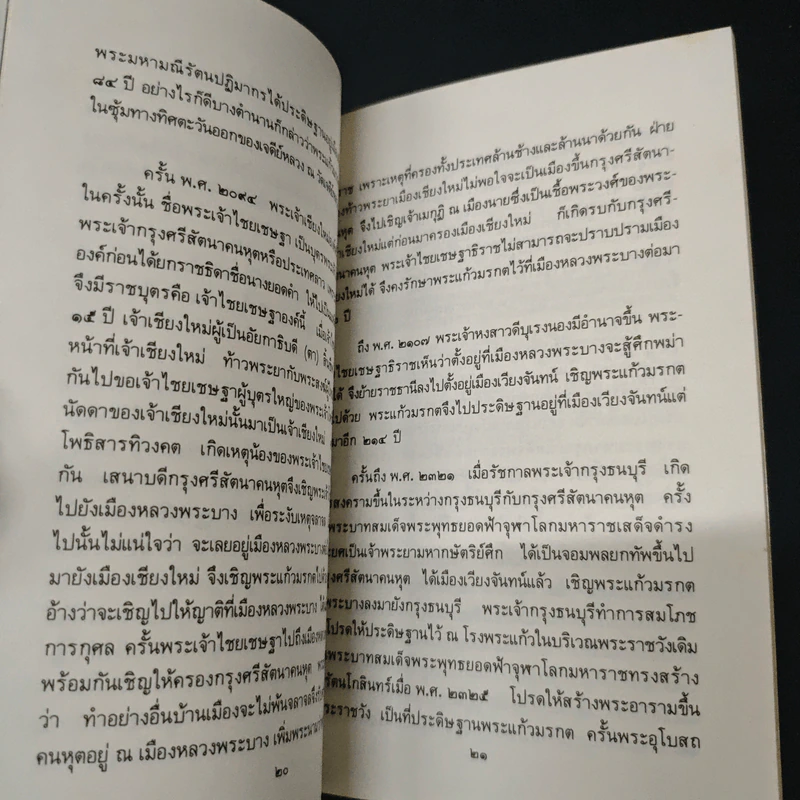 พระมหามณีรัตนปฏิมากรได้ประดิษฐานอยู่
๘๔ ปี อย่างไรก็ดีบางตำนานก็กล่าวว่าพระแก้ว
ในซุ้มทางทิศตะวันออกของเจดีย์หลวง ณ
ครั้น พ.ศ. ๒๐๙๔ พระเจ้าเชียงใหม่
ในครั้งนั้น ชื่อพระเจ้าไชยเชษฐา เป็นบุตร
พระเจ้ากรุงศรีสัตนาคนหุตหรือประเทศลาว
องค์ก่อนได้ยกราชธิดาชื่อนางยอดคำ ให้ไป
จึงมีราชบุตรคือ เจ้าไชยเชษฐาองค์นี้ เมื่อ
๑๕ ปี เจ้าเชียงใหม่ผู้เป็นอัยกาธิบดี (ตา)
หน้าที่เจ้าเชียงใหม่ ท้าวพระยากับพระสงฆ์
กันไปขอเจ้าไชยเชษฐาผู้บุตรใหญ่ของพระเจ้า
นัดดาของเจ้าเชียงใหม่นั้นมาเป็นเจ้าเชียงใหม่
โพธิสารทิวงคต เกิดเหตุน้องของพระเจ้าไชย
กัน เสนาบดีกรุงศรีสัตนาคนหุตจึงเชิญพระเจ้า
ไปยังเมืองหลวงพระบาง เพื่อระงับเหตุจลาจล
ไปนั้นไม่แน่ใจว่า จะเลยอยู่เมืองหลวงพระบาง
มายังเมืองเชียงใหม่ จึงเชิญพระแก้วมรกตไป
อ้างว่าจะเชิญไปให้ญาติที่เมืองหลวงพระบาง
การกุศล ครั้นพระเจ้าไชยเชษฐาไปถึงเมือง
พร้อมกันเชิญให้ครองกรุงศรีสัตนาคนหุต
ว่า ทำอย่างอื่นบ้านเมืองจะไม่พ้นจลาจล
คนหุตอยู่ ณ เมืองหลวงพระบาง เพิ่มพระนาม
๒๐
ราช เพราะเหตุที่ครองทั้งประเทศล้านช้างและล้านนาด้วยกัน ฝ่าย
ท้าวพระยาเมืองเชียงใหม่ไม่พอใจจะเป็นเมืองขึ้นกรุงศรีสัตนา-
หุต จึงไปเชิญเจ้าเมกุฏิ ณ เมืองนายซึ่งเป็นเชื้อพระวงศ์ของพระ-
เจ้าเชียงใหม่แต่ก่อนมาครองเมืองเชียงใหม่ ก็เกิดรบกับกรุงศรี-
นาคนหุต พระเจ้าไชยเชษฐาธิราชไม่สามารถจะปราบปรามเมือง
ใหม่ได้ จึงคงรักษาพระแก้วมรกตไว้ที่เมืองหลวงพระบางต่อมา
ปี
ถึง พ.ศ. ๒๑๐๗ พระเจ้าหงสาวดีบุเรงนองมีอำนาจขึ้น พระ-
ไชยเชษฐาธิราชเห็นว่าตั้งอยู่ที่เมืองหลวงพระบางจะสู้ศึกพม่า
ได้ จึงย้ายราชธานีลงไปตั้งอยู่เมืองเวียงจันทน์ เชิญพระแก้วมรกต
ไปด้วย พระแก้วมรกตจึงไปประดิษฐานอยู่ที่เมืองเวียงจันทน์แต่
มาอีก ๒๑๔ ปี
ครั้นถึง พ.ศ. ๒๓๒๑ เมื่อรัชกาลพระเจ้ากรุงธนบุรี เกิด
สงครามขึ้นในระหว่างกรุงธนบุรีกับกรุงศรีสัตนาคนหุต ครั้ง
พระบาทสมเด็จพระพุทธยอดฟ้าจุฬาโลกมหาราชเสด็จดำรง
ยศเป็นเจ้าพระยามหากษัตริย์ศึก ได้เป็นจอมพลยกทัพขึ้นไป
ศรีสัตนาคนหุต ได้เมืองเวียงจันทน์แล้ว เชิญพระแก้วมรกต
พระบางลงมายังกรุงธนบุรี พระเจ้ากรุงธนบุรีทำการสมโภช
โปรดให้ประดิษฐานไว้ ณ โรงพระแก้วในบริเวณพระราชวังเดิม
พระบาทสมเด็จพระพุทธยอดฟ้าจุฬาโลกมหาราชทรงสร้าง
รัตนโกสินทร์เมื่อ พ.ศ. ๒๓๒๕ โปรดให้สร้างพระอารามขึ้น
ระราชวัง เป็นที่ประดิษฐานพระแก้วมรกต ครั้นพระอุโบสถ
๒๑